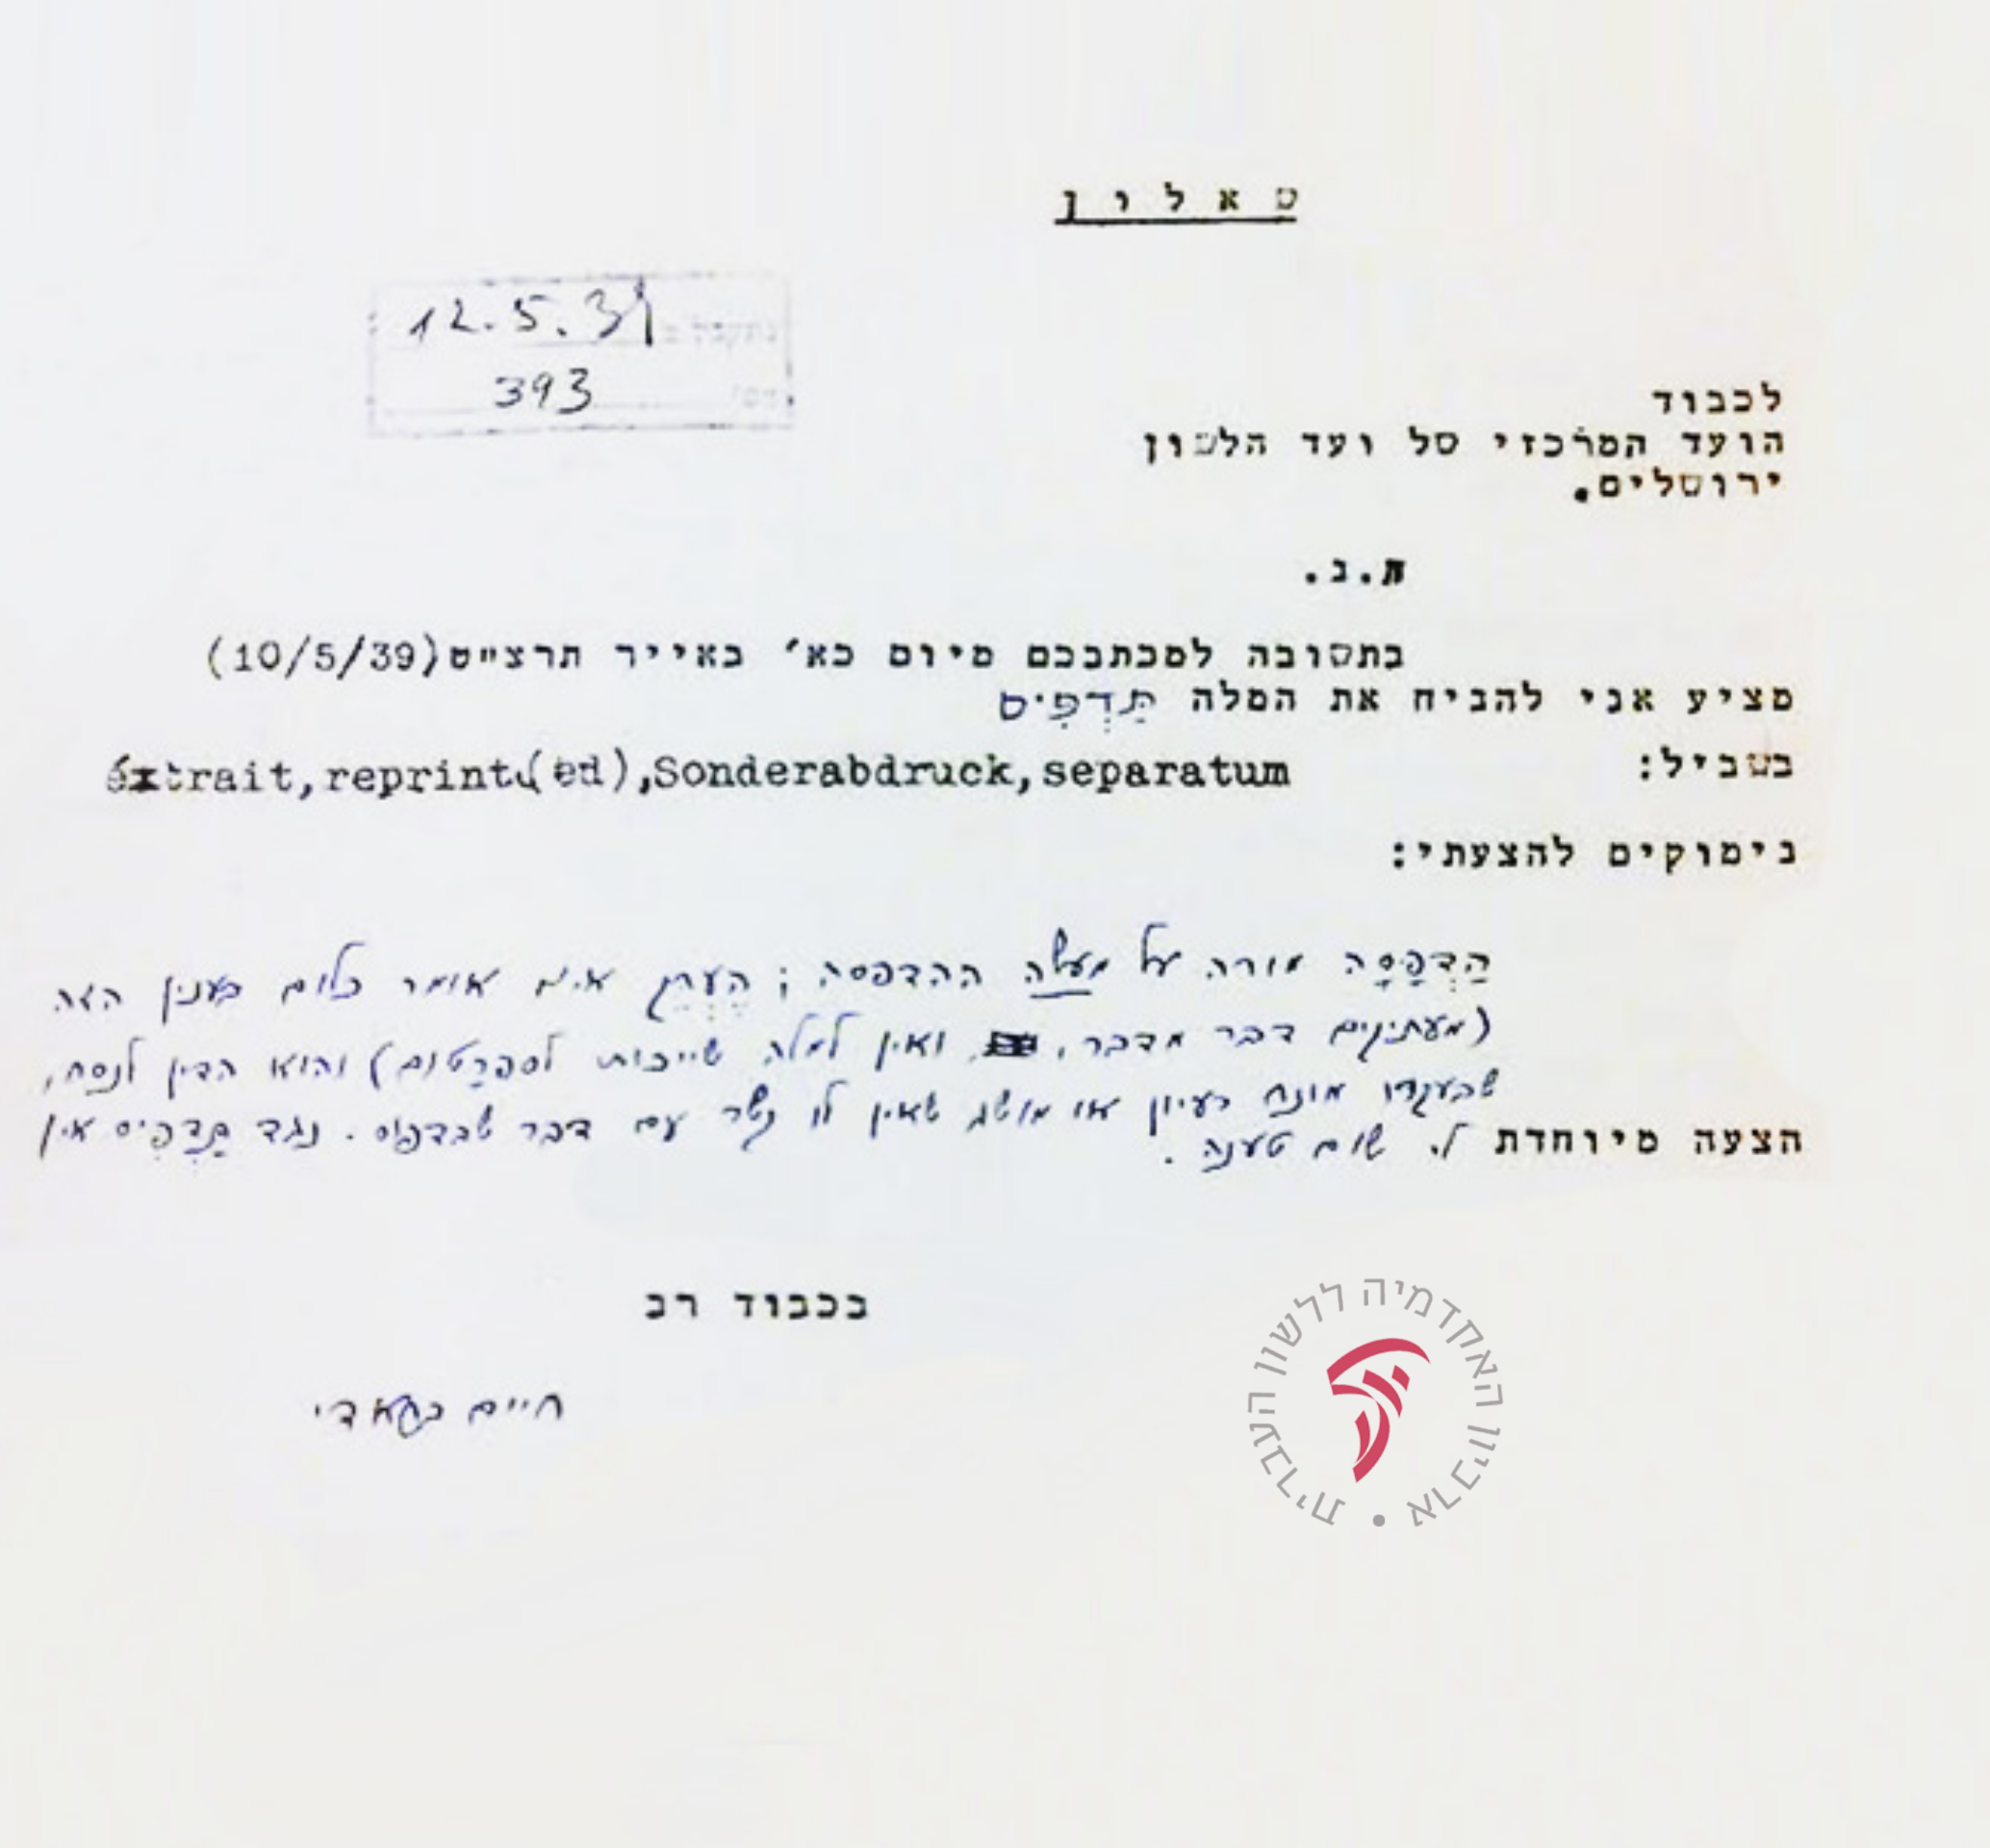 שאלון
12.5.39
נתקבל ב
393
מס'
לכבוד
הועד המרכזי של ועד הלשון
ירושלים.
א.נ.
בתשובה למכתבכם מיום כא' באייר תרצ"ט (10/5/39)
מציע אני להניח את המלה תַּדְפִּיס
בשביל: éxtrait, reprint(ed), Sonderabdruck, separatum
נימוקים להצעתי:
הַדְפָּסָה מורה על מעשה ההדפסה ; העתק אינו אומר כלום בענין הזה
(מעתיקים דבר מדבר, ואין למלה שייכות לספרַטום) והוא הדין לנסח,
שבעקרו מונח רעיון או מושג שאין לו קשר עם דבר שבדפוס. נגד תַּדְפִּיס אין
הצעה מיוחדת לי שום טענה.
בכבוד רב
חיים
האקדמיה ללשון העברית • ארכיון